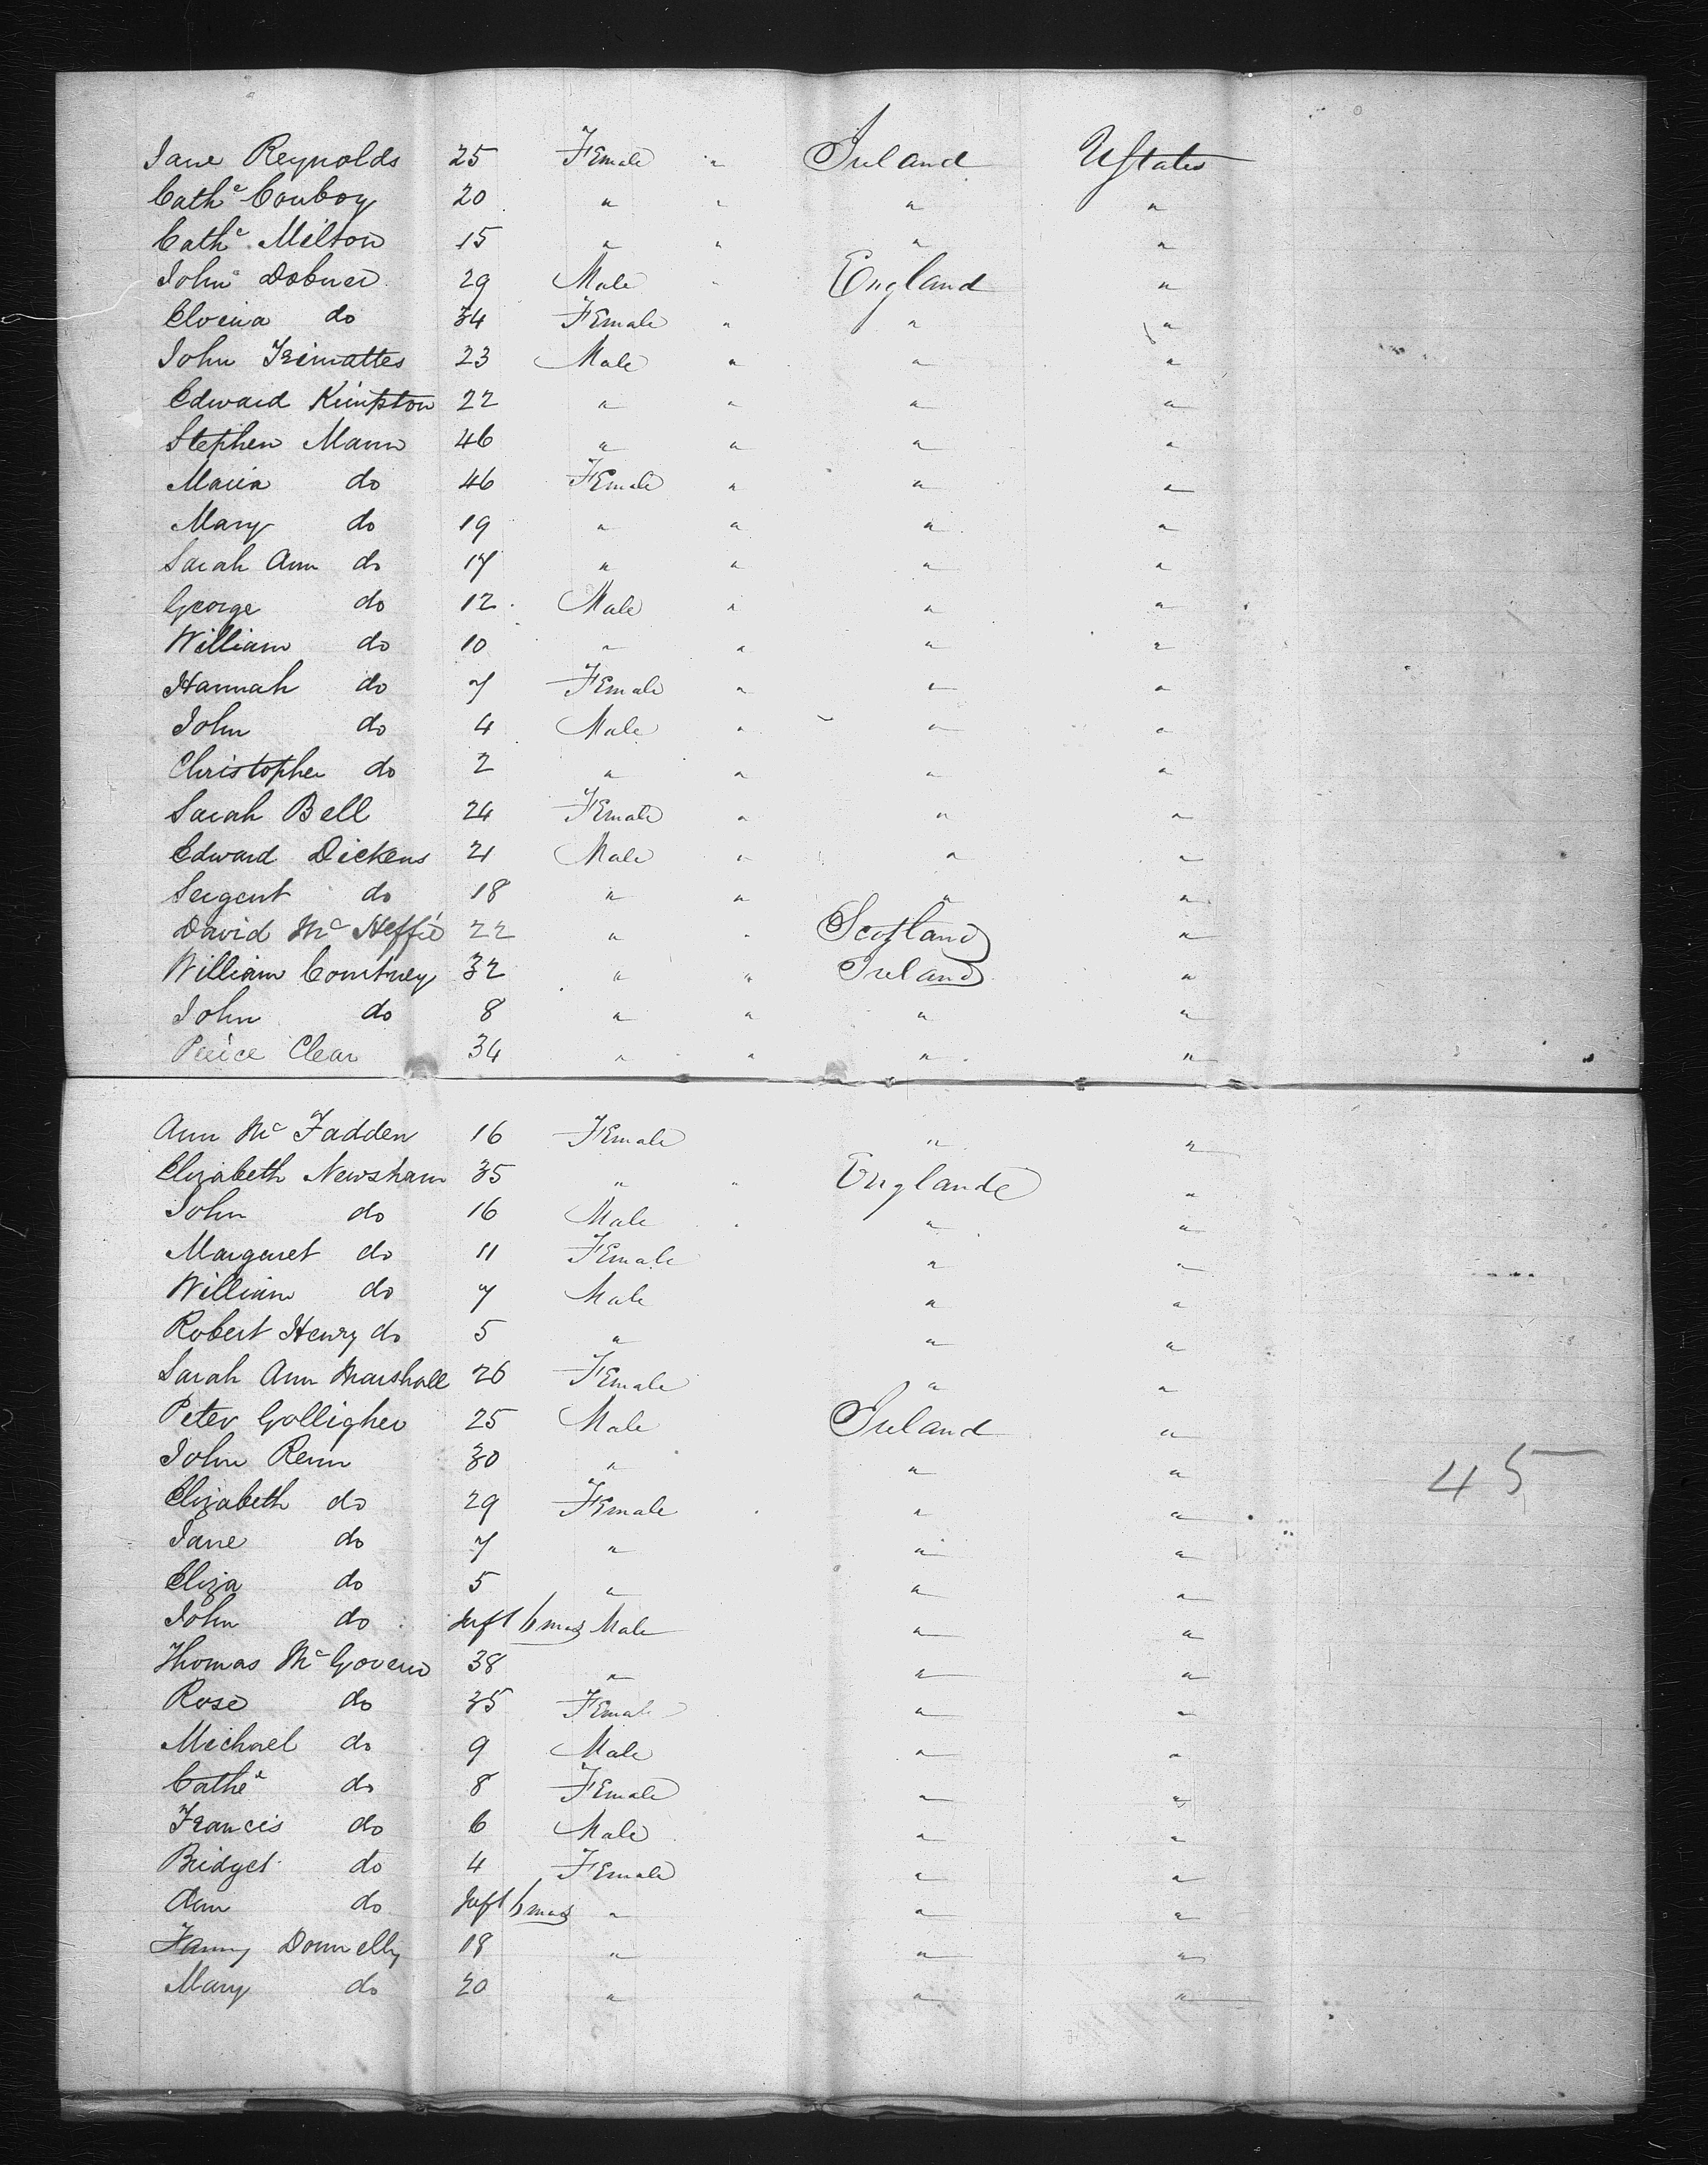 Jane Reynolds 25 Female " Ireland UStates
Cathe Conboy 20 " " " "
Cathe Milton 15 " " " "
John Dobner 29 Male " England "
Elveina do 34 Female " " "
John Trimattes 23 Male " " "
Edward Kimpton 22 " " " "
Stephen Mann 46 " " " "
Maria do 46 Female " " "
Mary do 19 " " " "
Sarah Ann do 17 " " " "
George do 12 Male " " "
William do 10 " " " "
Hannah do 7 Female " " "
John do 4 Male " " "
Christopher do 2 " " " "
Sarah Bell 24 Female " " "
Edward Dickens 21 Male " " "
Sergent do 18 " " " "
David Mc Heffie 22 " " Scotland "
William Courtney 32 " " Ireland "
John do 8 " " " "
Peirce Clear 34 " " " "
Ann Mc Fadden 16 Female " "
Elizabeth Newsham 35 " " England "
John do 16 Male " " "
Margaret do 11 Female " "
William do 7 Male " "
Robert Henry do 5 " " "
Sarah Ann Marshall 26 Female " "
Peter Golligher 25 Male Ireland "
John Renn 30 " " "
45
Elizabeth do 29 Female " "
Jane do 7 " " "
Eliza do 5 " " "
John do Inft 6 mos Male " "
Thomas Mc Govern 38 " " "
Rose do 35 Female " "
Michael do 9 Male " "
Cathe do 8 Female " "
Francis do 6 Male " "
Bridget do 4 Female " "
Ann do Inft 6 mos " " "
Fanny Donnelly 18 " " "
Mary do 20 " " "